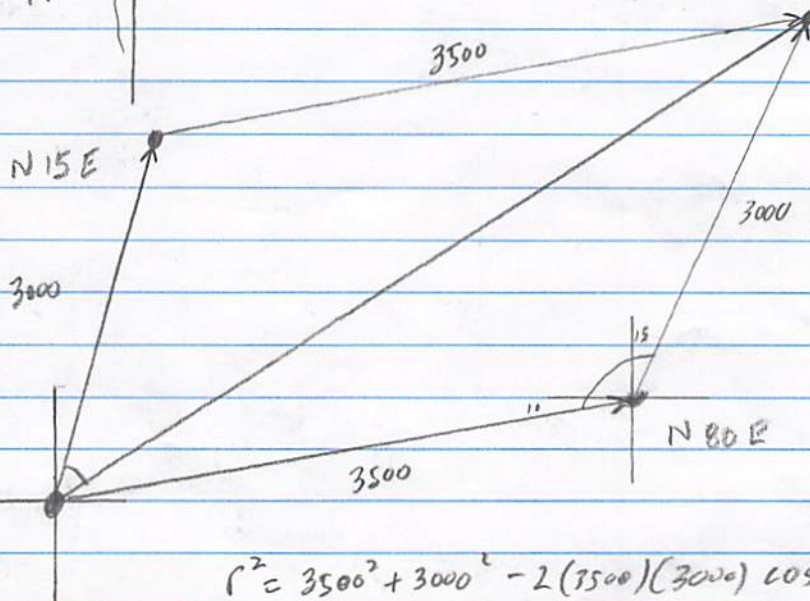 3500
N 15 E
3000
3000
15
10
N 80 E
3500
r² = 3500² + 3000² - 2(3500)(3000) cos